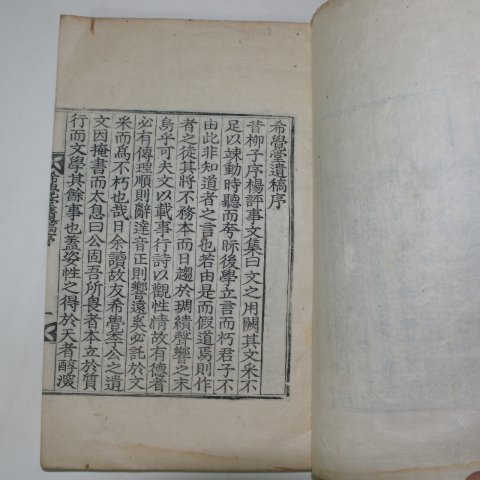 希覺堂遺稿序
昔柳子序楊評事文集曰文之用闕其文采不
足以竦動時聽而夸眎後學立言而朽君子不
由此非知道者之言也若由是而假道焉則作
者之徒其將不務本而日趨於琱繢聲響之末
烏乎可夫文以載事行詩以觀性情故有德者
必有傳理順則辭達音正則響遠奚必託於文
采而爲不朽也哉日余讀故友希覺李公之遺
文因掩書而太息曰公固吾所畏者本立於質
行而文學其餘事也蓋姿性之得於天者醇深
希覺堂遺稿序